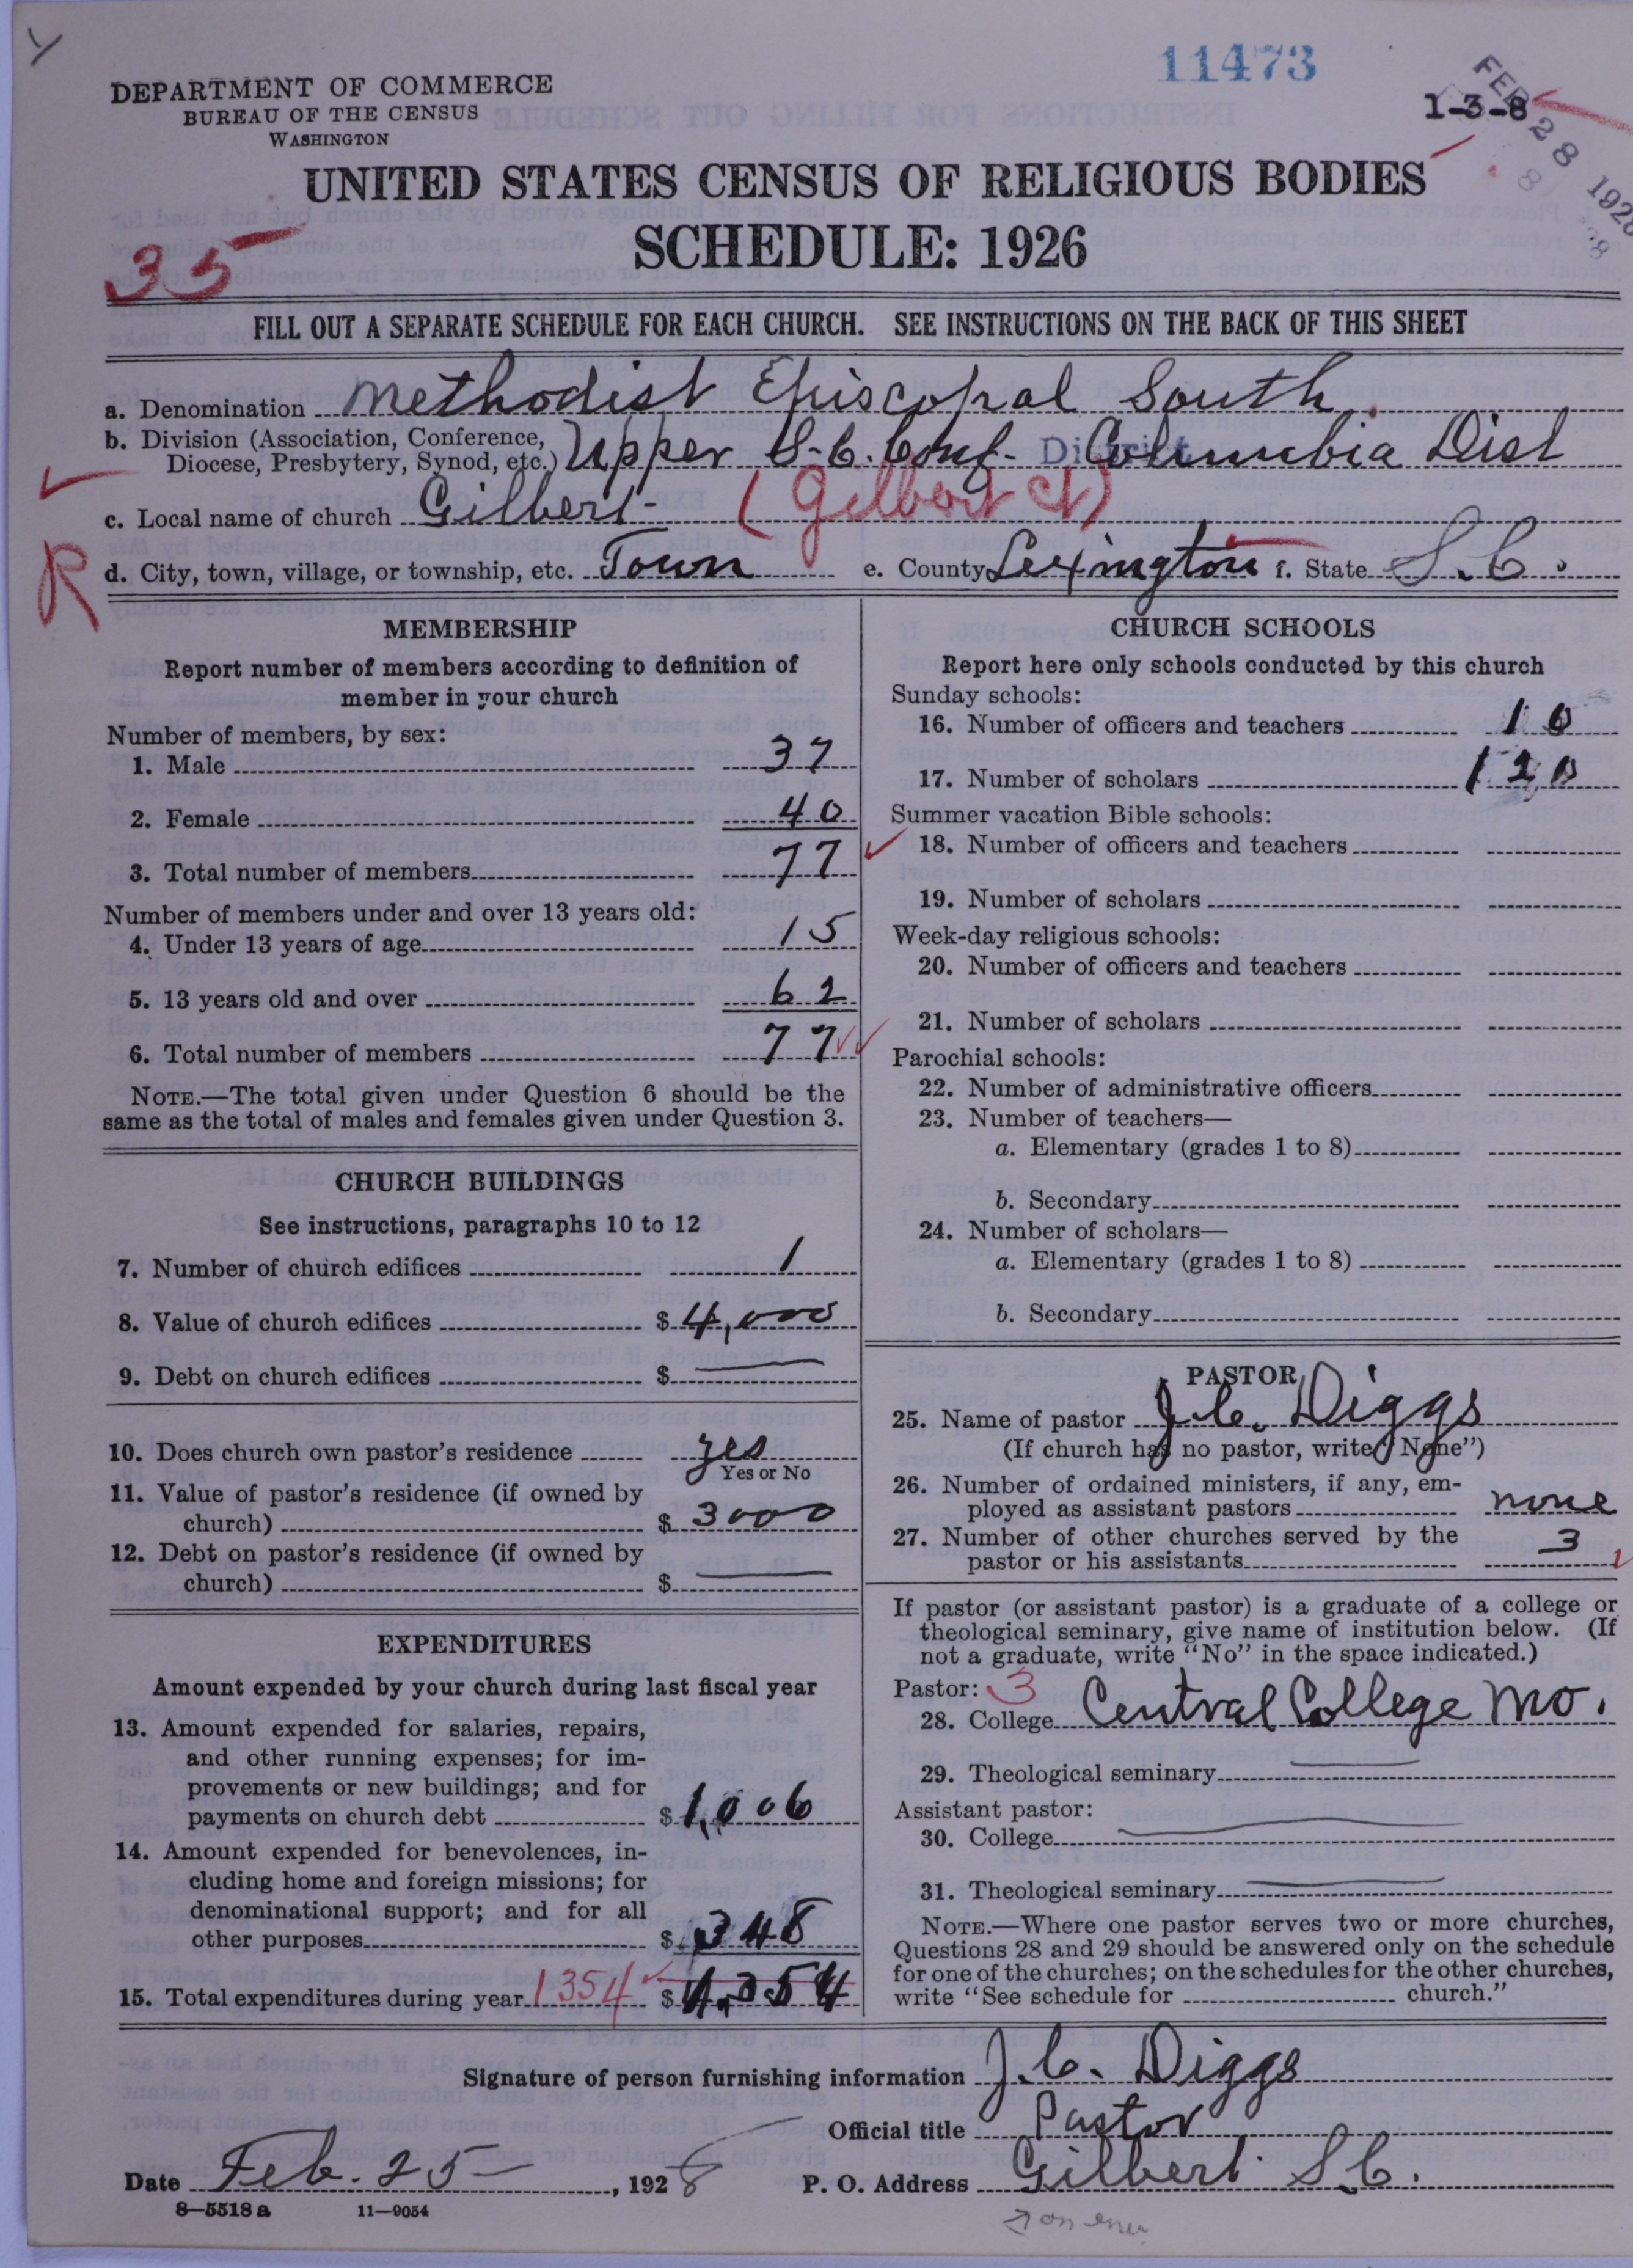 11473
DEPARTMENT OF COMMERCE
BUREAU OF THE CENSUS
WASHINGTON
1-3-8
FEB 28 1928
UNITED STATES CENSUS OF RELIGIOUS BODIES
SCHEDULE: 1926
35
FILL OUT A SEPARATE SCHEDULE FOR EACH CHURCH. SEE INSTRUCTIONS ON THE BACK OF THIS SHEET
a. Denomination Methodist Episcopal South.
b. Division (Association, Conference, Diocese, Presbytery, Synod, etc.) Upper S.C. Conf. District Columbia Dist
c. Local name of church Gilbert (Gilbert Ct)
R
d. City, town, village, or township, etc. Town e. County Lexington f. State S.C.
MEMBERSHIP
Report number of members according to definition of
member in your church
Number of members, by sex:
1. Male 37
2. Female 40
3. Total number of members 77
Number of members under and over 13 years old:
4. Under 13 years of age 15
5. 13 years old and over 62
6. Total number of members 77
NOTE.—The total given under Question 6 should be the
same as the total of males and females given under Question 3.
CHURCH BUILDINGS
See instructions, paragraphs 10 to 12
7. Number of church edifices 1
8. Value of church edifices $ 4,000
9. Debt on church edifices $
10. Does church own pastor's residence yes
Yes or No
11. Value of pastor's residence (if owned by
church) $ 3000
12. Debt on pastor's residence (if owned by
church) $
EXPENDITURES
Amount expended by your church during last fiscal year
13. Amount expended for salaries, repairs,
and other running expenses; for im-
provements or new buildings; and for
payments on church debt $ 1,006
14. Amount expended for benevolences, in-
cluding home and foreign missions; for
denominational support; and for all
other purposes $ 348
15. Total expenditures during year 1354 $ 1,354
CHURCH SCHOOLS
Report here only schools conducted by this church
Sunday schools:
16. Number of officers and teachers 10
17. Number of scholars 120
Summer vacation Bible schools:
18. Number of officers and teachers
19. Number of scholars
Week-day religious schools:
20. Number of officers and teachers
21. Number of scholars
Parochial schools:
22. Number of administrative officers
23. Number of teachers—
a. Elementary (grades 1 to 8)
b. Secondary
24. Number of scholars—
a. Elementary (grades 1 to 8)
b. Secondary
PASTOR
25. Name of pastor J.C. Diggs
(If church has no pastor, write "None")
26. Number of ordained ministers, if any, em-
ployed as assistant pastors none
27. Number of other churches served by the
pastor or his assistants 3
If pastor (or assistant pastor) is a graduate of a college or
theological seminary, give name of institution below. (If
not a graduate, write "No" in the space indicated.)
Pastor: 3
28. College Central College Mo.
29. Theological seminary
Assistant pastor:
30. College
31. Theological seminary
NOTE.—Where one pastor serves two or more churches,
Questions 28 and 29 should be answered only on the schedule
for one of the churches; on the schedules for the other churches,
write "See schedule for church."
Signature of person furnishing information J.C. Diggs
Official title Pastor
Date Feb. 25, 1928 P. O. Address Gilbert S.C.
8—5518 a 11—9054